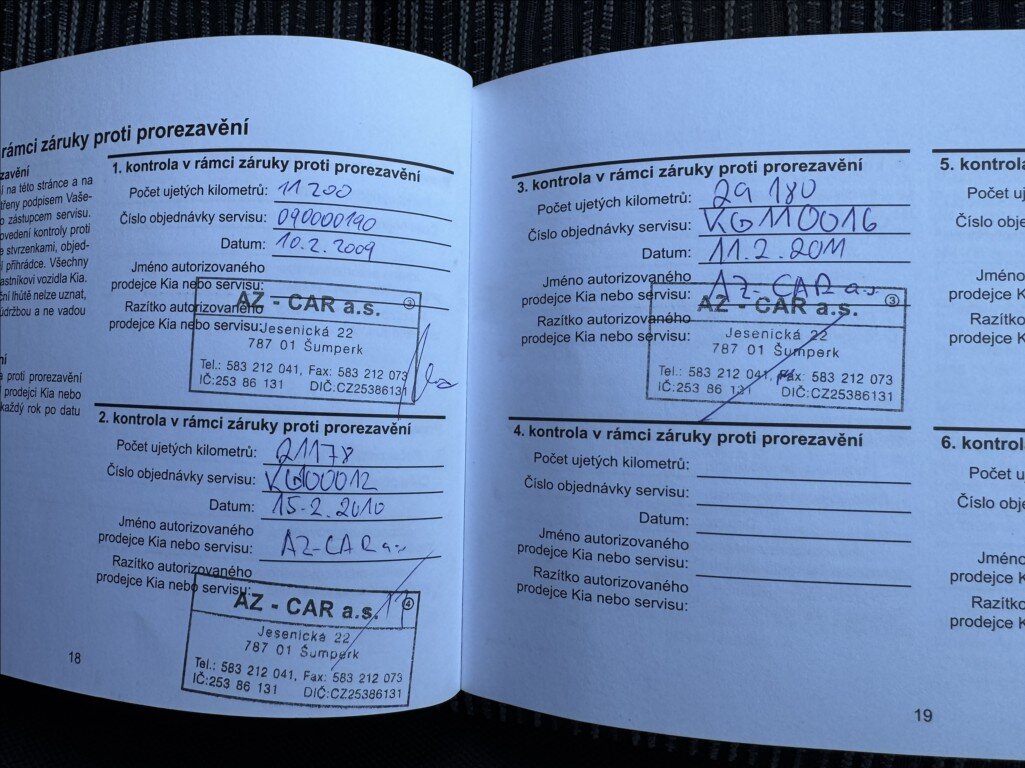 rámci záruky proti prorezavění
zavění
í na této stránce a na
třeny podpisem Vaše-
o zástupcem servisu.
ovedení kontroly proti
e stvrzenkami, objed-
í přihrádce. Všechny
astníkovi vozidla Kia.
ční lhůtě nelze uznat,
údržbou a ne vadou
ní
a proti prorezavění
í prodejci Kia nebo
každý rok po datu
1. kontrola v rámci záruky proti prorezavění
Počet ujetých kilometrů: 11 200
Číslo objednávky servisu: 090000190
Datum: 10.2.2009
Jméno autorizovaného
prodejce Kia nebo servisu:
Razítko autorizovaného
prodejce Kia nebo servisu:
AZ - CAR a.s. 3
Jesenická 22
787 01 Šumperk
Tel.: 583 212 041, Fax: 583 212 073
IČ:253 86 131 DIČ:CZ25386131
2. kontrola v rámci záruky proti prorezavění
Počet ujetých kilometrů: 21178
Číslo objednávky servisu: KG100012
Datum: 15.2.2010
Jméno autorizovaného
prodejce Kia nebo servisu: AZ-CAR a.s.
Razítko autorizovaného
prodejce Kia nebo servisu:
AZ - CAR a.s. 4
Jesenická 22
787 01 Šumperk
Tel.: 583 212 041, Fax: 583 212 073
IČ:253 86 131 DIČ:CZ25386131
18
3. kontrola v rámci záruky proti prorezavění
Počet ujetých kilometrů: 29 180
Číslo objednávky servisu: KG110016
Datum: 11.2.2011
Jméno autorizovaného
prodejce Kia nebo servisu: AZ-CAR a.s.
Razítko autorizovaného
prodejce Kia nebo servisu:
AZ - CAR a.s. 3
Jesenická 22
787 01 Šumperk
Tel.: 583 212 041, Fax: 583 212 073
IČ:253 86 131 DIČ:CZ25386131
4. kontrola v rámci záruky proti prorezavění
Počet ujetých kilometrů:
Číslo objednávky servisu:
Datum:
Jméno autorizovaného
prodejce Kia nebo servisu:
Razítko autorizovaného
prodejce Kia nebo servisu:
5. kontrola
Počet uj
Číslo objedn
Jméno
prodejce Kia
Razítko
prodejce Kia
6. kontrol
Počet u
Číslo objed
Jméno
prodejce Kia
Razítk
prodejce Kia
19